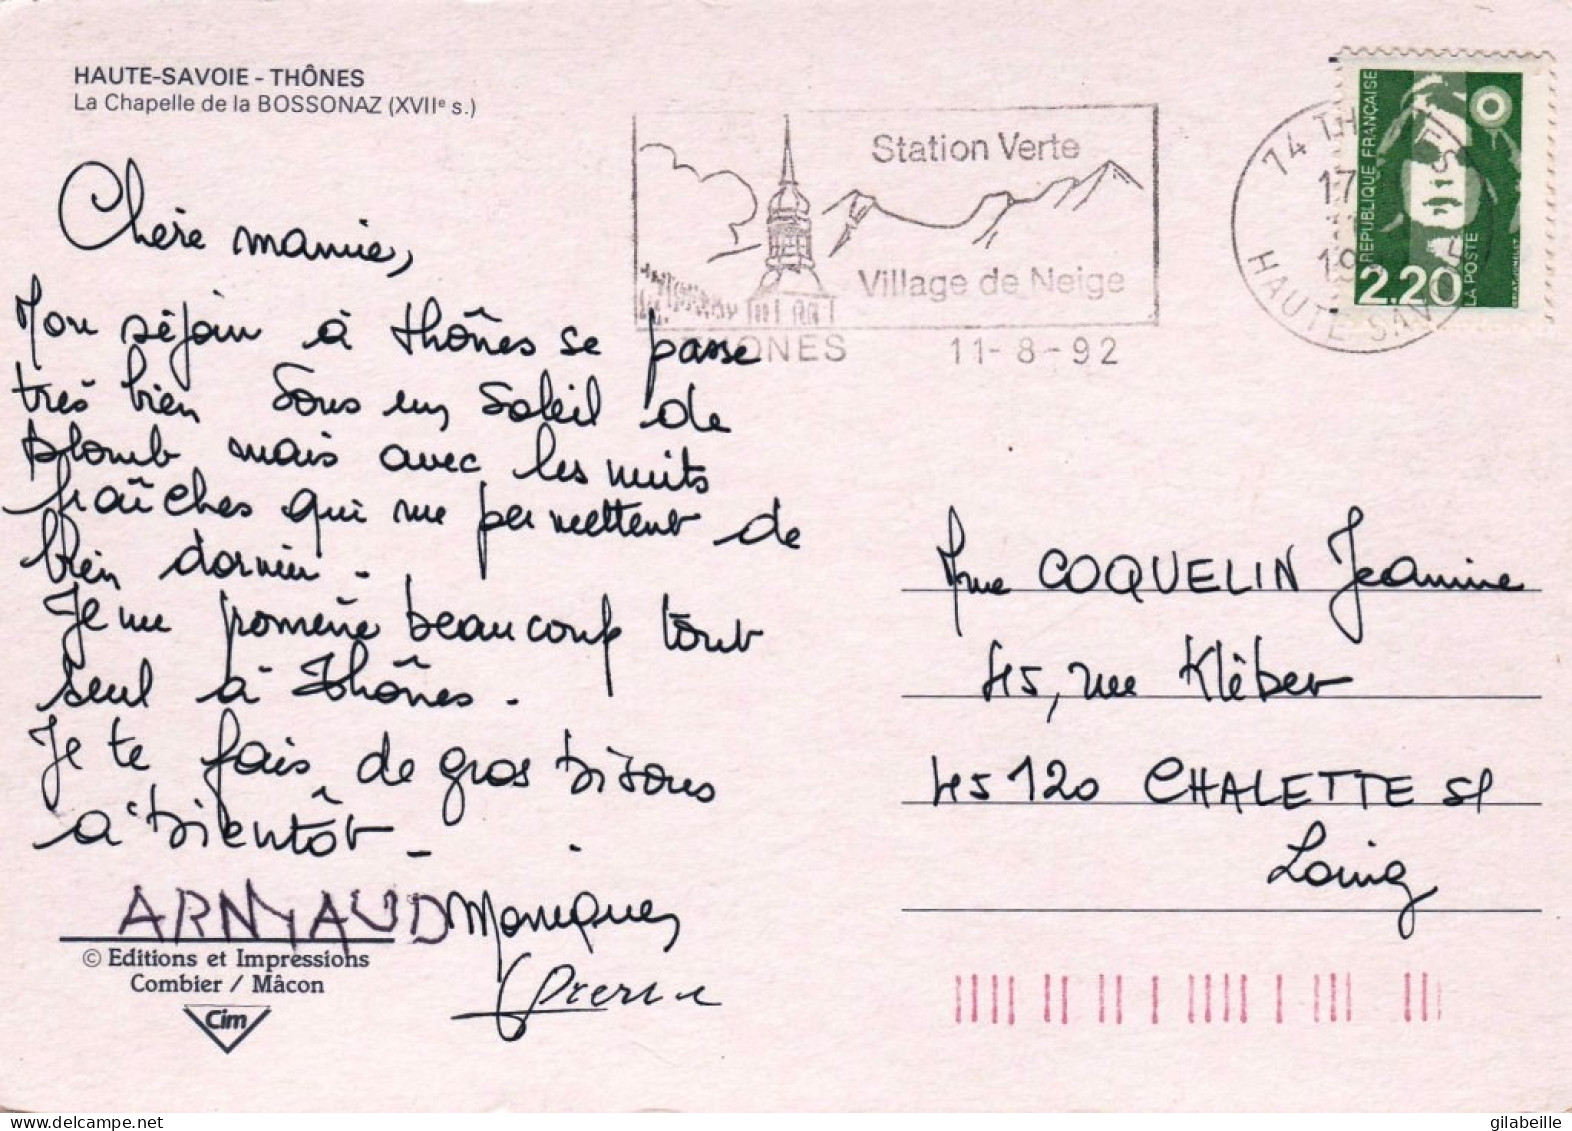 HAUTE-SAVOIE - THÔNES
La Chapelle de la BOSSONAZ (XVIIe s.)
Chère mamie,
Mon séjour à thônes se passe
très bien sous un soleil de
plomb mais avec les nuits
fraîches qui me permettent de
bien dormir -
Je me promène beaucoup tout
seul à Thônes.
Je te fais de gros bisous
à bientôt -
ARNAUD Monique
Pierre
© Editions et Impressions
Combier / Mâcon
Cim
Station Verte
Village de Neige
THONES 11-8-92
74 THONES
17
19
HAUTE SAVOIE
REPUBLIQUE FRANÇAISE
LA POSTE
2.20
Mme COQUELIN Jeannine
45, rue Kléber
45120 CHALETTE s/
Loing
www.delcampe.net
gilabeille